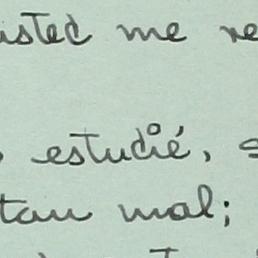 usted me
estudié,
tan mal;